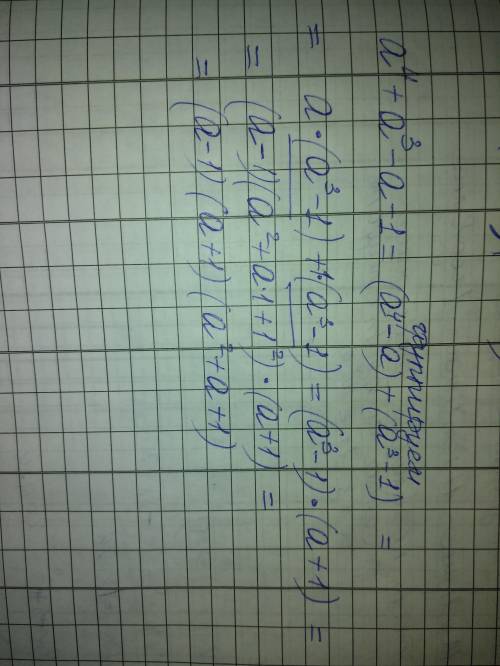 группируем
a⁴ + a³ - a - 1 = (a⁴ - a) + (a³ - 1) =
= a · (a³ - 1) + 1·(a³ - 1) = (a³ - 1) · (a + 1) =
= (a - 1)(a² + a·1 + 1²) · (a + 1) =
= (a - 1)(a + 1)(a² + a + 1)